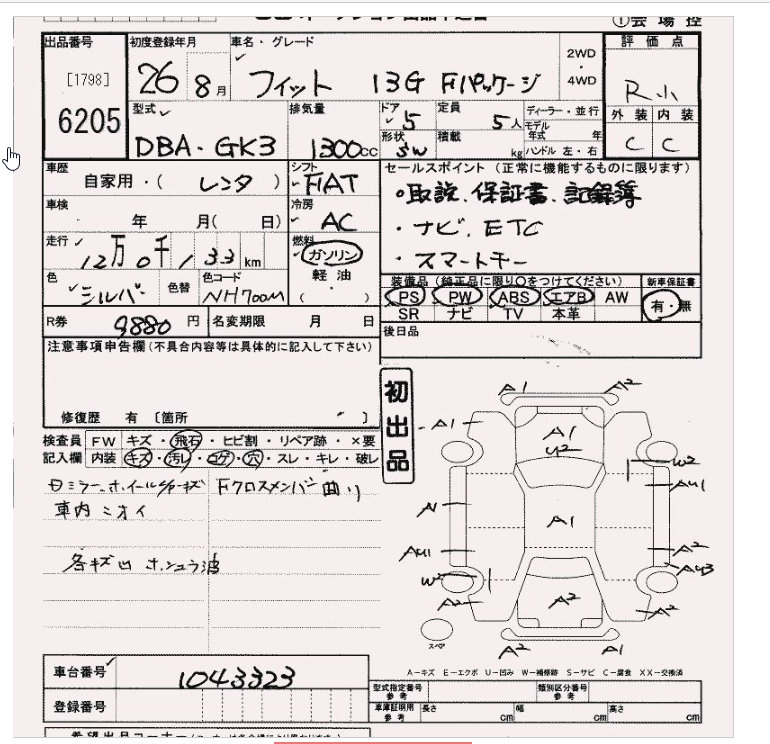 出品番号
[1798]
6205
初度登録年月
26 8月
車名・グレード
フィット 13G Fパッケージ
2WD
・
4WD
評価点
R小
型式
DBA・GK3
排気量
1300cc
ドア
5
形状
SW
定員
5人
積載
kg
ディーラー・並行
モデル年式 年
ハンドル 左・右
外装 内装
C C
車歴
自家用・( レンタ )
シフト
FIAT
セールスポイント(正常に機能するものに限ります)
取説、保証書、記録簿
・ナビ、ETC
・スマートキー
車検
年 月( 日)
冷房
AC
走行
12万0千133km
燃料
ガソリン
軽油
( )
色
シルバー
色替
色コード
NH700M
装備品(純正品に限り○をつけてください)
PS PW ABS エアB AW
SR ナビ TV 本革
新車保証書
有・無
R券 9880円
名変期限 月 日
後日品
注意事項申告欄(不具合内容等は具体的に記入して下さい)
修復歴 有〔箇所 〕
初出品
検査員 FW キズ・飛石・ヒビ割・リペア跡・×要
記入欄 内装 キズ・汚レ・コゲ・穴・スレ・キレ・破レ
Fクロスメンバー曲り
車内ニオイ
各キズ凹 ホシュウ波
A1 A2
A1
A1
U2
W2
AU1
A1
A1
AU1
A2
AU3
W2
A2
A2
A2
A2
A1
スペア
A-キズ E-エクボ U-凹み W-補修跡 S-サビ C-腐食 XX-交換済
車台番号
1043323
登録番号
型式指定番号
参考
類別区分番号
参考
車庫証明用
参考
長さ cm
幅 cm
高さ cm